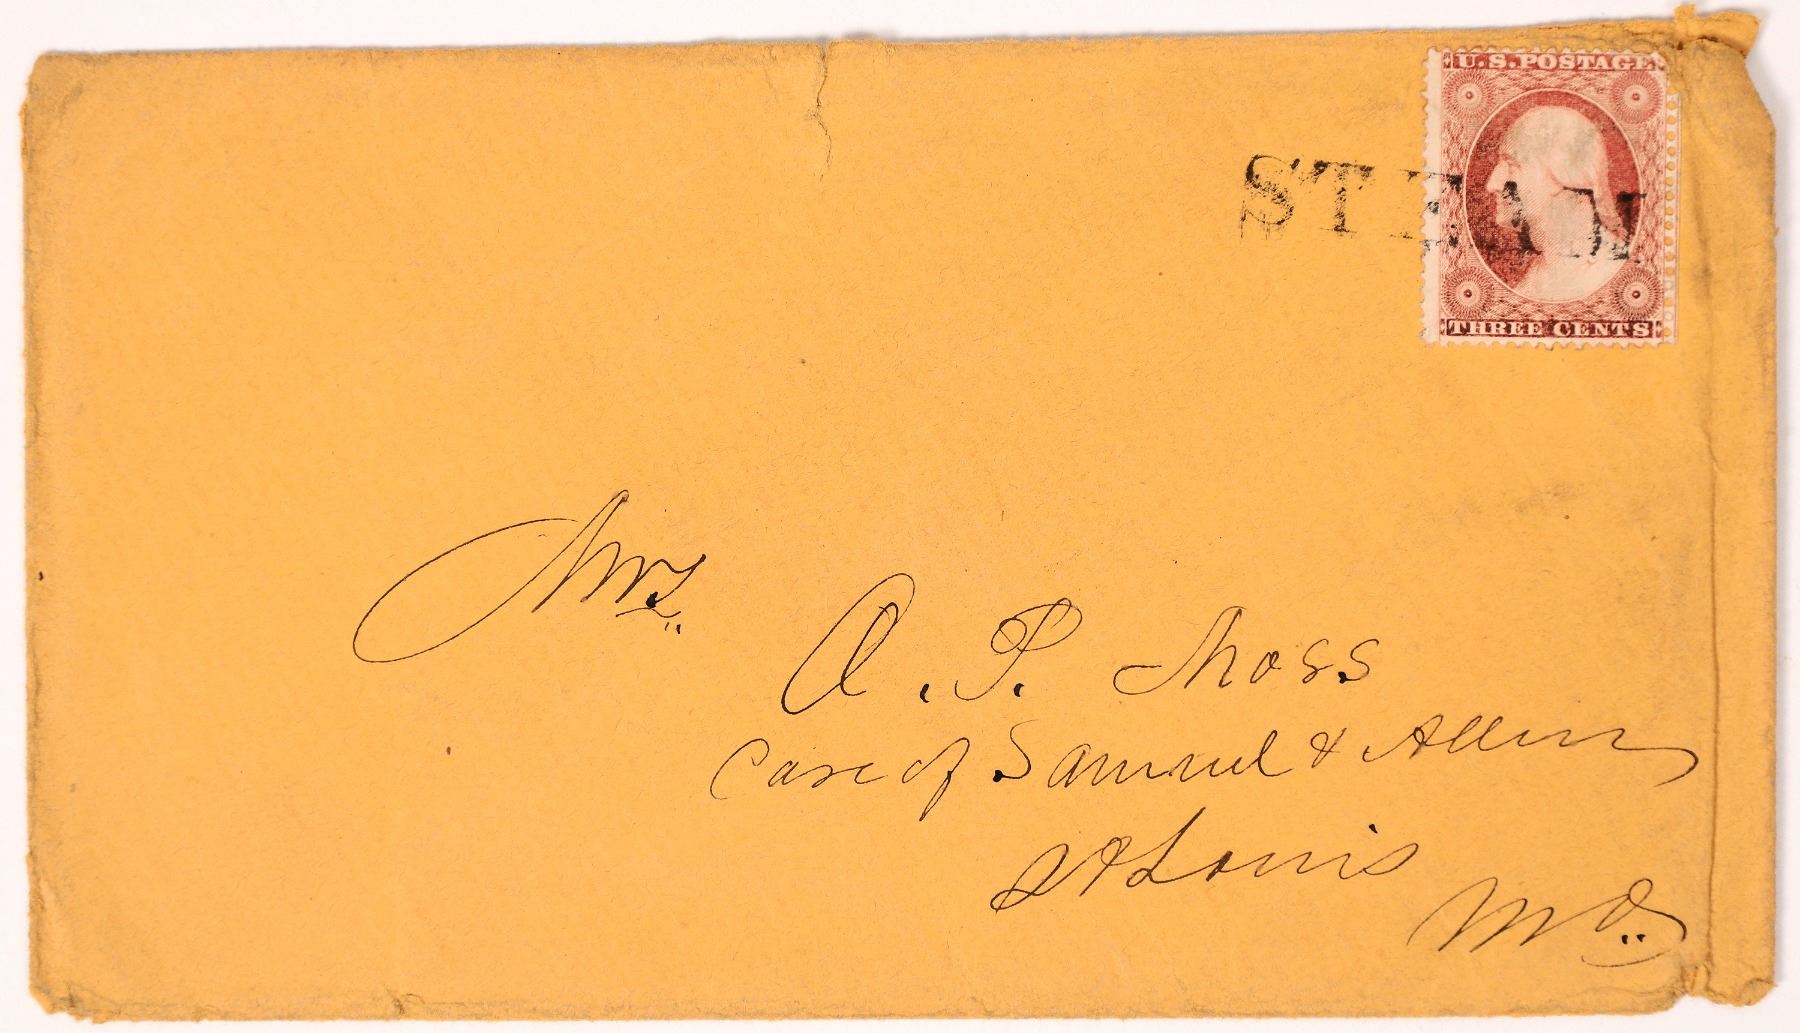 U.S. POSTAGE
STEAM
THREE CENTS
Mrs.
A. P. Moss
Care of Samuel & Allen
St Louis
Mo.